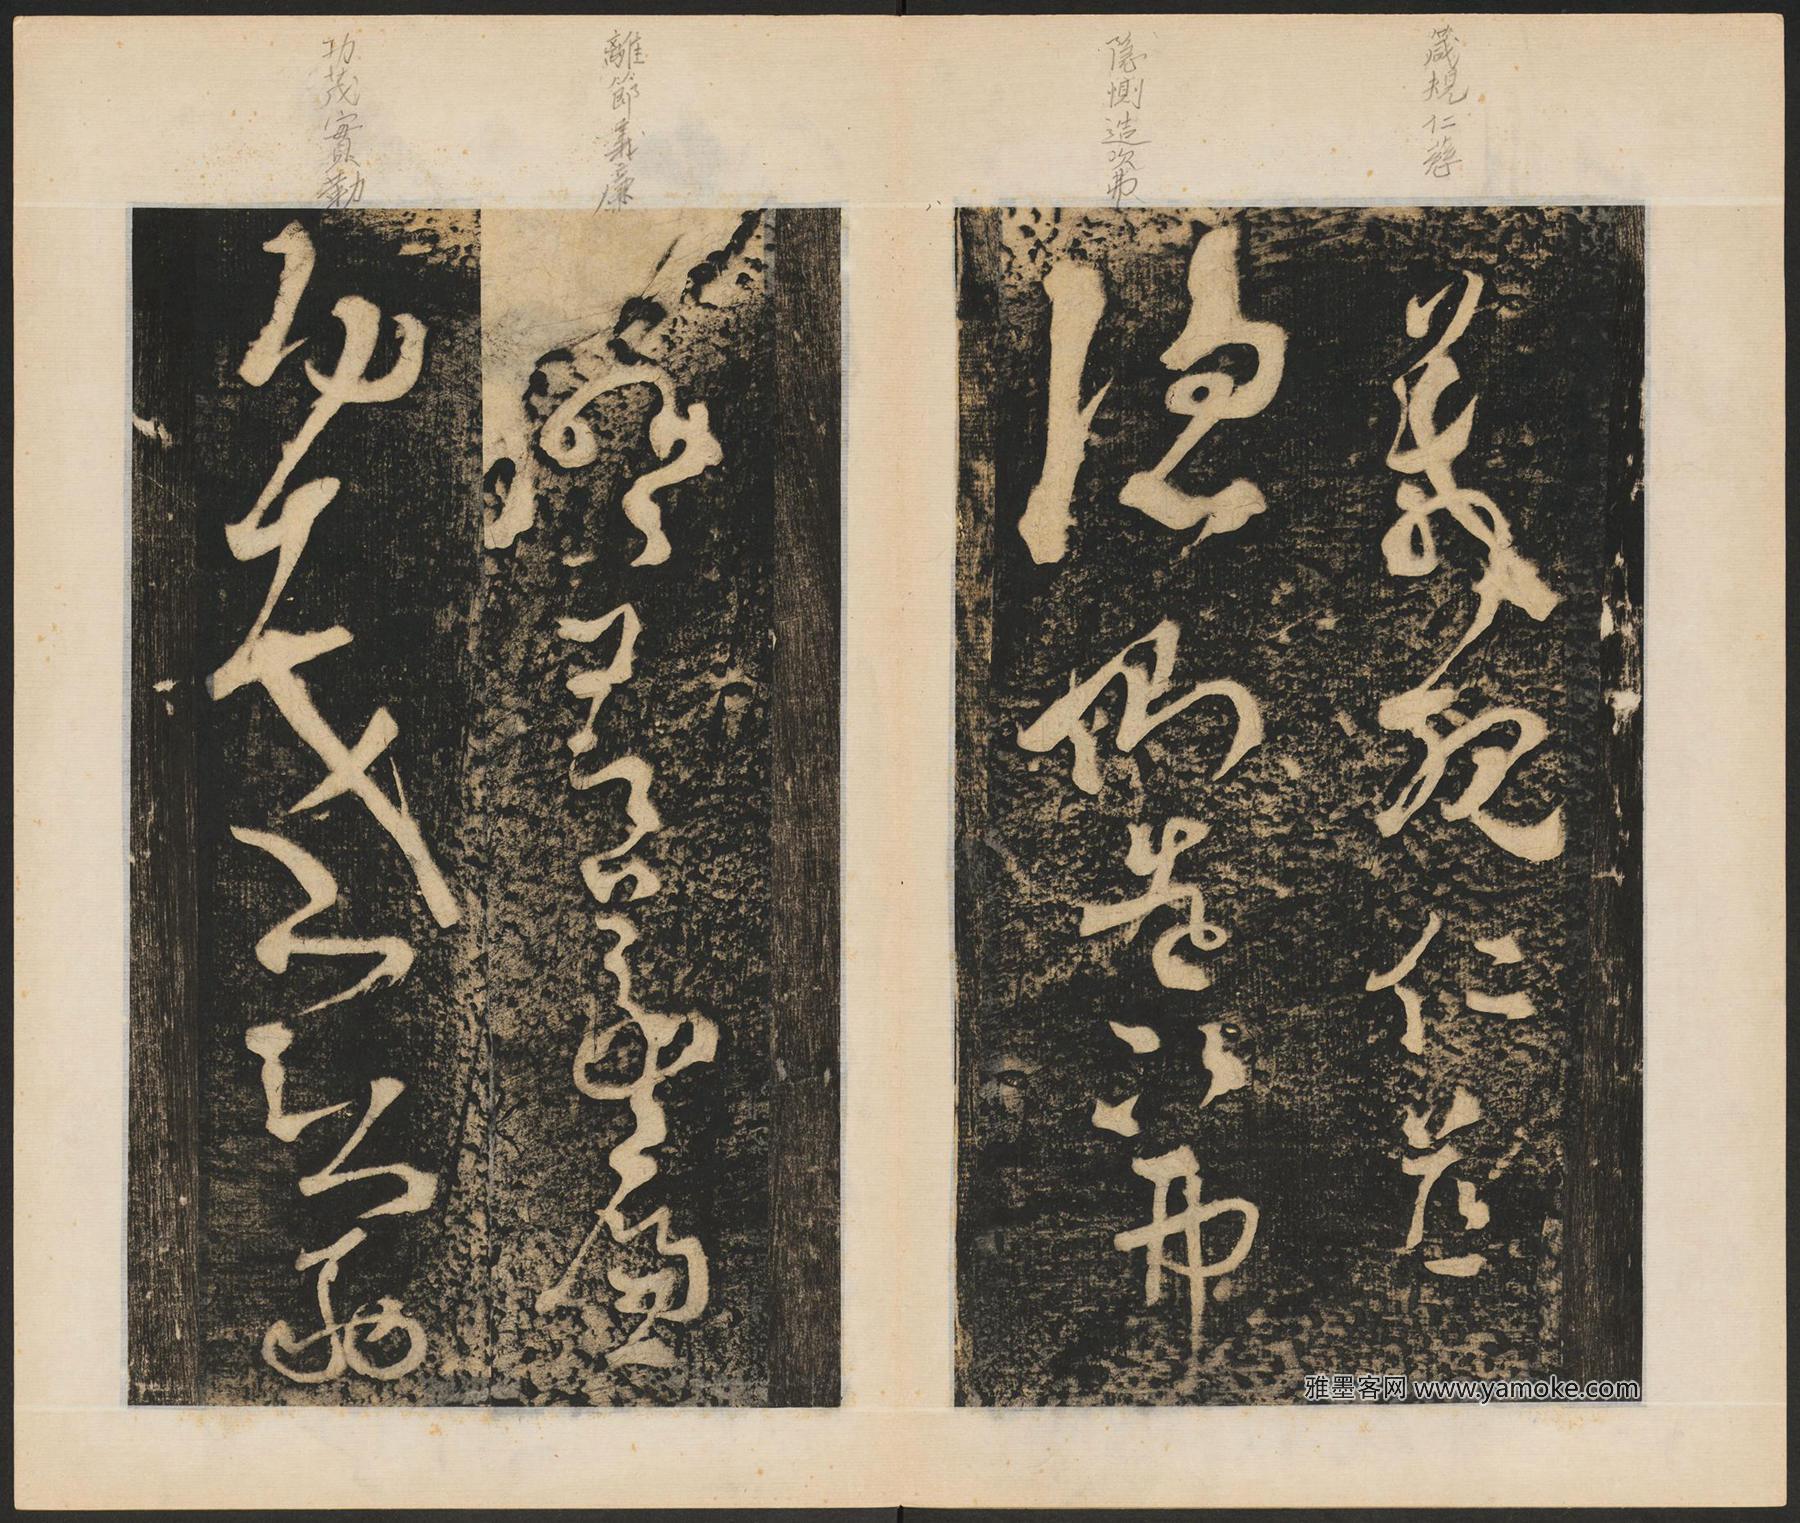 箴規仁慈
隐惻造次弗
離節義廉
功茂實勒
箴規仁慈
隱惻造次弗
離節義廉
功茂實勒
雅墨客网 www.yamoke.com